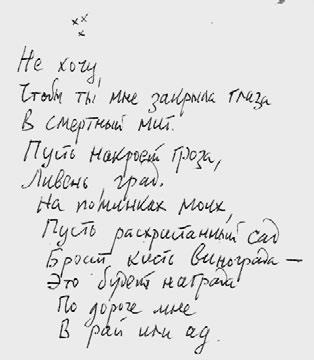 Не хочу,
Чтобы ты мне закрыла глаза
В смертный миг.
Пусть накроет гроза,
Ливень, град.
На поминках моих,
Пусть расхристанный сад
Бросит кисть винограда —
Это будет награда
По дороге мне
В рай или ад.